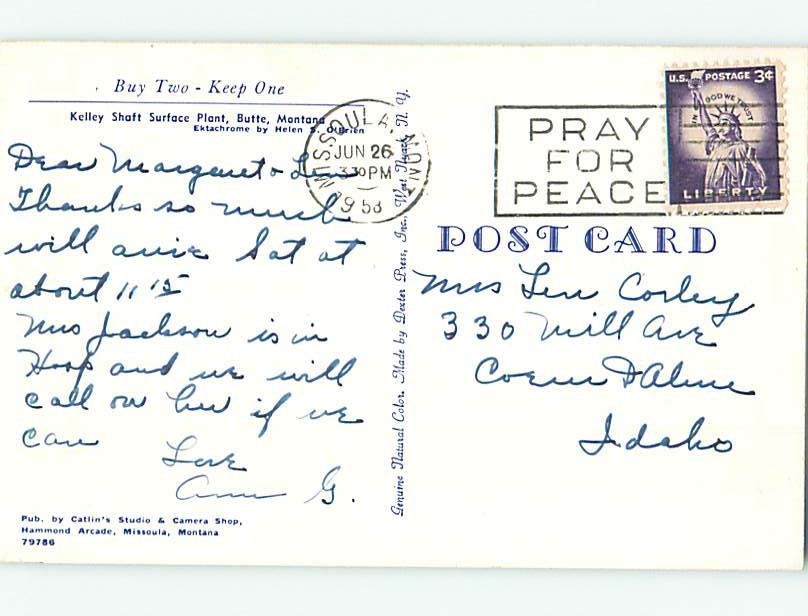 Buy Two - Keep One
Kelley Shaft Surface Plant, Butte, Montana
Ektachrome by Helen S. O'Brien
Dear Margaret & Len
Thanks so much
will arive Sat at
about 11 15
Mrs Jackson is in
Hosp and we will
call on her if we
can
Love
Ann G.
Pub. by Catlin's Studio & Camera Shop,
Hammond Arcade, Missoula, Montana
79786
Genuine Natural Color. Made by Dexter Press, Inc., West Nyack, N. Y.
MISSOULA, MONT
JUN 26
3 30 PM
1958
PRAY
FOR
PEACE
U.S. POSTAGE 3¢
IN GOD WE TRUST
LIBERTY
POST CARD
Mrs Len Corley
330 Mill Ave
Coeur D Alene
Idaho